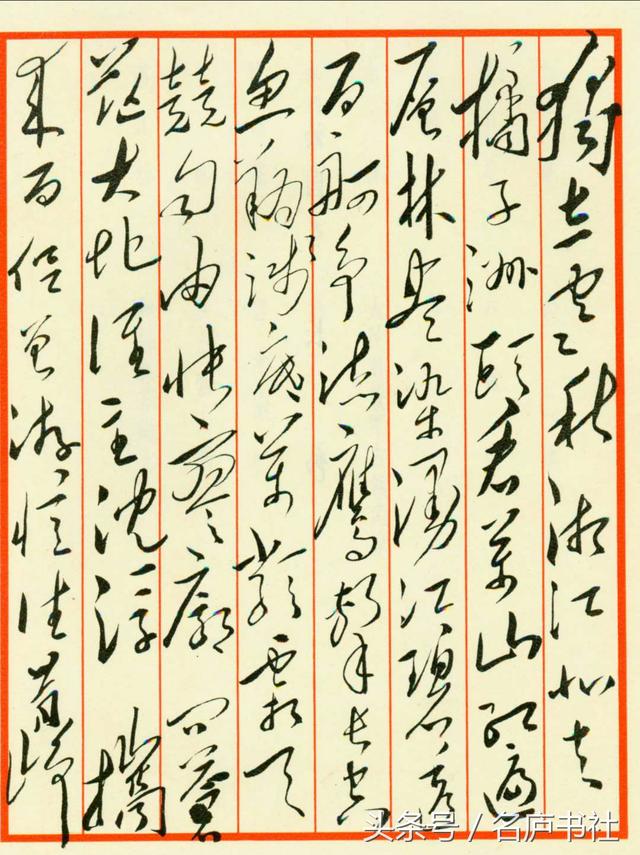 獨立寒秋湘江北去
橘子洲頭看萬山紅遍
層林盡染漫江碧透
百舸爭流鷹擊長空
魚翔淺底萬類霜天
競自由悵寥廓問蒼
茫大地誰主沈浮 攜
來百侶曾游憶往昔崢
头条号 / 名庐书社